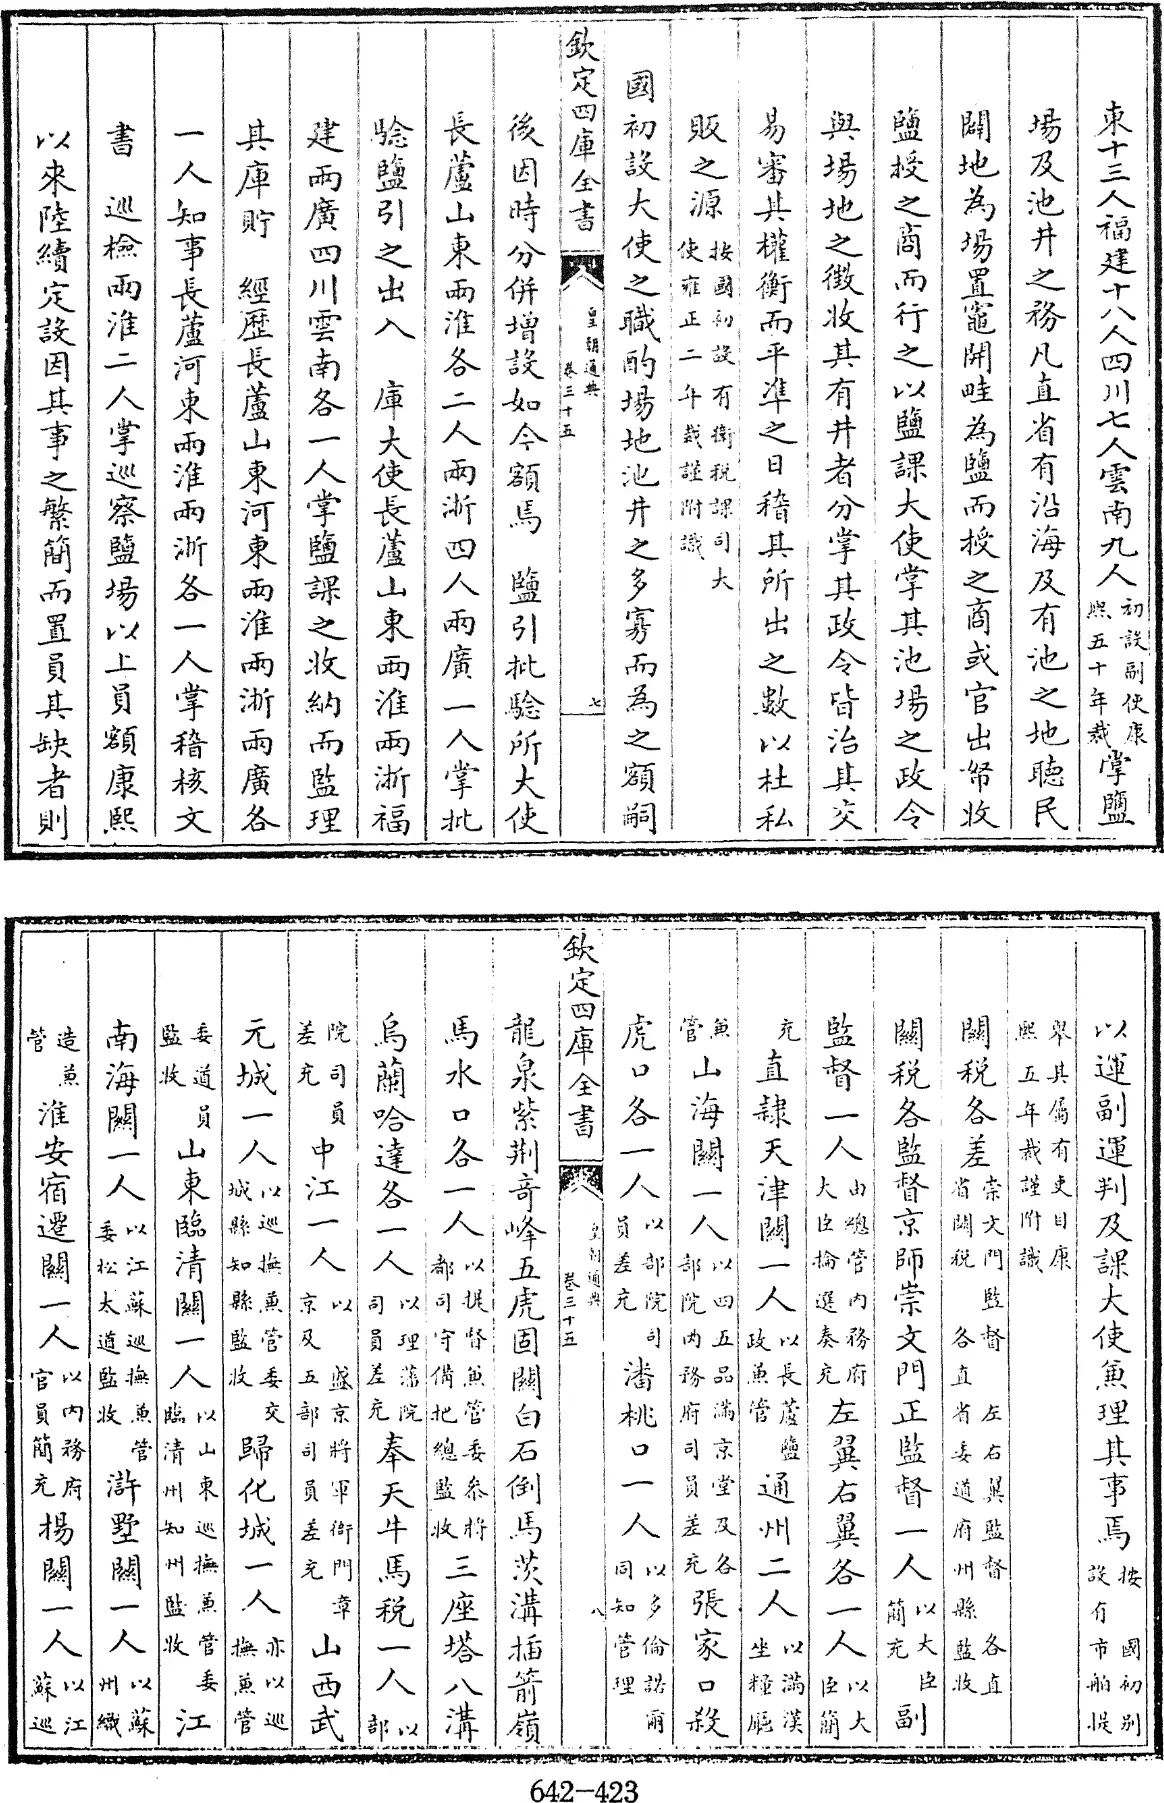 東十三人福建十八人四川七人雲南九人初設副使康熙五十年裁掌鹽
場及池井之務凡直省有沿海及有池之地聽民
闢地為場置竈開畦為鹽而授之商或官出帑收
鹽授之商而行之以鹽課大使掌其池場之政令
與場地之徴收其有井者分掌其政令皆治其交
易審其權衡而平準之日稽其所出之數以杜私
販之源按國初設有衛稅課司大使雍正二年裁謹附識
國初設大使之職酌場地池井之多寡而為之額嗣
欽定四庫全書 皇朝通典卷三十五 七
後因時分併增設如今額馬 鹽引批驗所大使
長蘆山東兩淮各二人兩浙四人兩廣一人掌批
驗鹽引之出入 庫大使長蘆山東兩淮兩浙福
建兩廣四川雲南各一人掌鹽課之收納而監理
其庫貯 經歷長蘆山東河東兩淮兩浙兩廣各
一人知事長蘆河東兩淮兩浙各一人掌稽核文
書 巡檢兩淮二人掌巡察鹽場以上員額康熙
以來陸續定設因其事之繁簡而置員其缺者則
以運副運判及課大使兼理其事焉按國初別設有市舶提
舉其屬有吏目康熙五年裁謹附識
關税各差崇文門監督左右翼監督各直省關稅各直省委道府州縣監收
關税各監督京師崇文門正監督一人以大臣簡充副
監督一人由總管内務府大臣掄選奏充左翼右翼各一人以大臣簡
充直隷天津關一人以長蘆鹽政兼管通州二人以滿漢坐糧廳
兼管山海關一人以四五品滿京堂及各部院内務府司員差充張家口殺
虎口各一人以部院司員差充潘桃口一人以多倫諾爾同知管理
欽定四庫全書 皇朝通典卷三十五 八
龍泉紫荊竒峰五虎固關白石倒馬茨溝插箭嶺
馬水口各一人以提督兼管委叅將都司守備把總監收三座塔八溝
烏蘭哈達各一人以理藩院司員差充奉天牛馬税一人以部
院司員差充中江一人以盛京將軍衙門章京及五部司員差充山西武
元城一人以巡撫兼管委交城縣知縣監收歸化城一人亦以巡撫兼管
委道員監收山東臨清關一人以山東巡撫兼管委臨清州知州監收江
南海關一人以江蘇巡撫兼管委松太道監收滸墅關一人以蘇州織
造兼管淮安宿遷關一人以内務府官員簡充揚關一人以江蘇巡
642-423